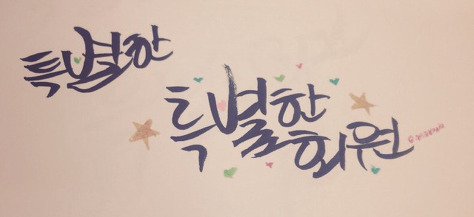 특별한
특별한
회원